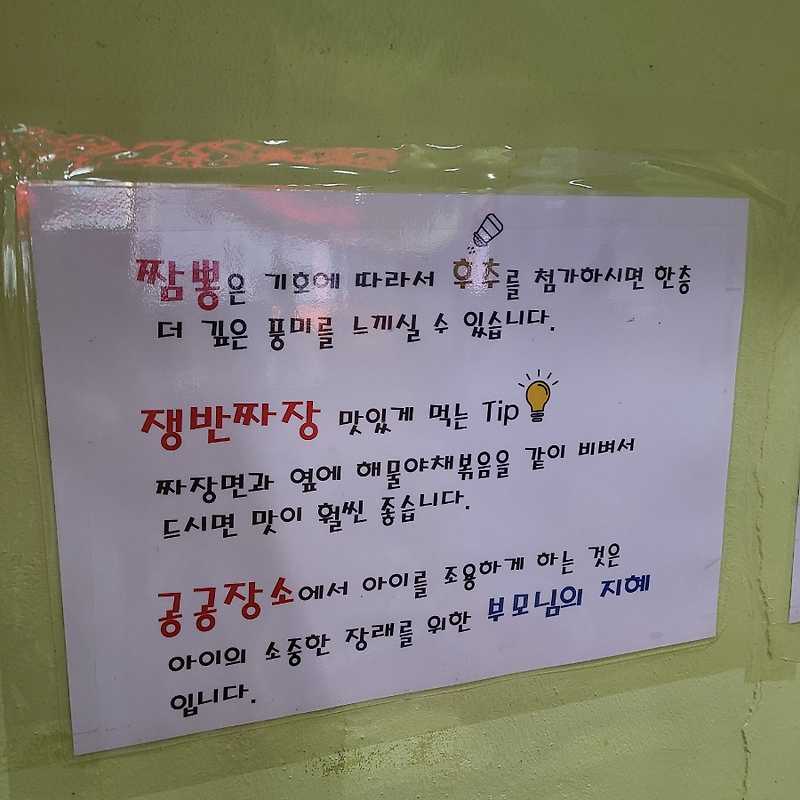 짬뽕은 기호에 따라서 후추를 첨가하시면 한층
더 깊은 풍미를 느끼실 수 있습니다.
쟁반짜장 맛있게 먹는 Tip
짜장면과 옆에 해물야채볶음을 같이 비벼서
드시면 맛이 훨씬 좋습니다.
공공장소에서 아이를 조용하게 하는 것은
아이의 소중한 장래를 위한 부모님의 지혜
입니다.